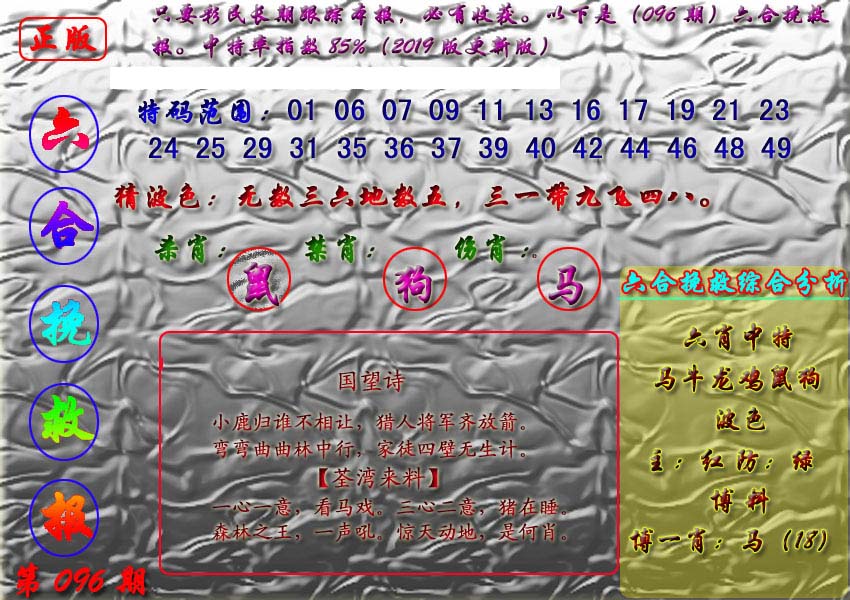 正版
只要彩民长期跟踪本报，必有收获。以下是（096期）六合挽救
报。中特率指数85%（2019版更新版）
六合挽救报
第096期
特码范围：01 06 07 09 11 13 16 17 19 21 23
24 25 29 31 35 36 37 39 40 42 44 46 48 49
猜波色：无数三六地数五，三一带九飞四八。
杀肖： 禁肖： 伤肖：。
鼠 狗 马
国望诗
小鹿归谁不相让，猎人将军齐放箭。
弯弯曲曲林中行，家徒四壁无生计。
【荃湾来料】
一心一意，看马戏。三心二意，猪在睡。
森林之王，一声吼。惊天动地，是何肖。
六合挽救综合分析
六肖中特
马牛龙鸡鼠狗
波色
主：红防：绿
博料
博一肖：马（18）